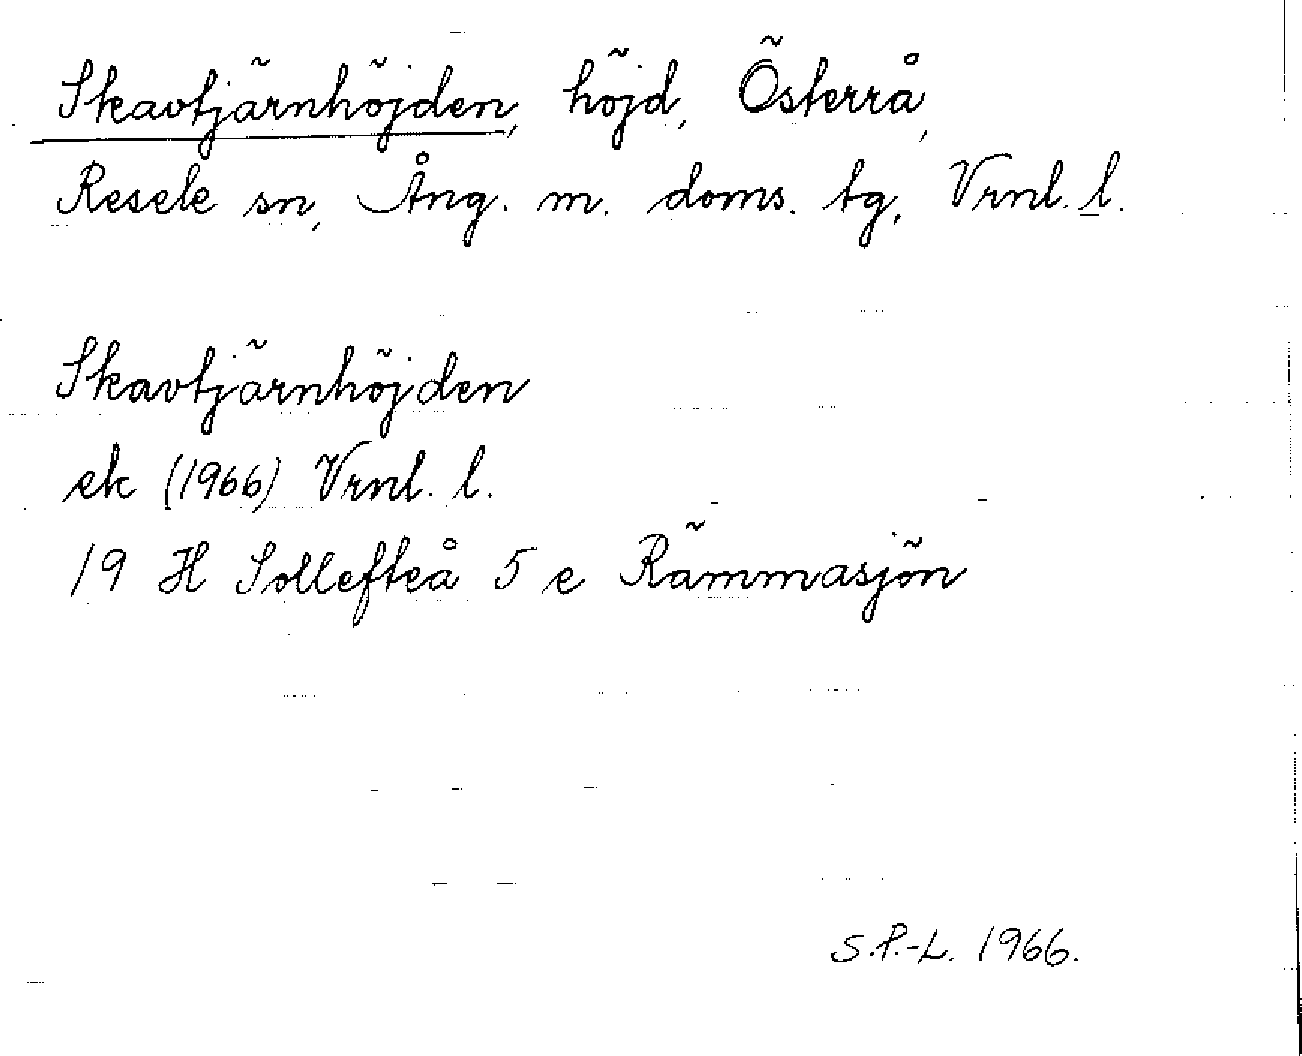 Skavtjärnhöjden, höjd, Österrå,
Resele sn, Ång. m. doms. tg, Vrnl. l.
Skavtjärnhöjden
ek (1966) Vrnl. l.
19 H Sollefteå 5 e Rämmasjön
S.P.-L. 1966.